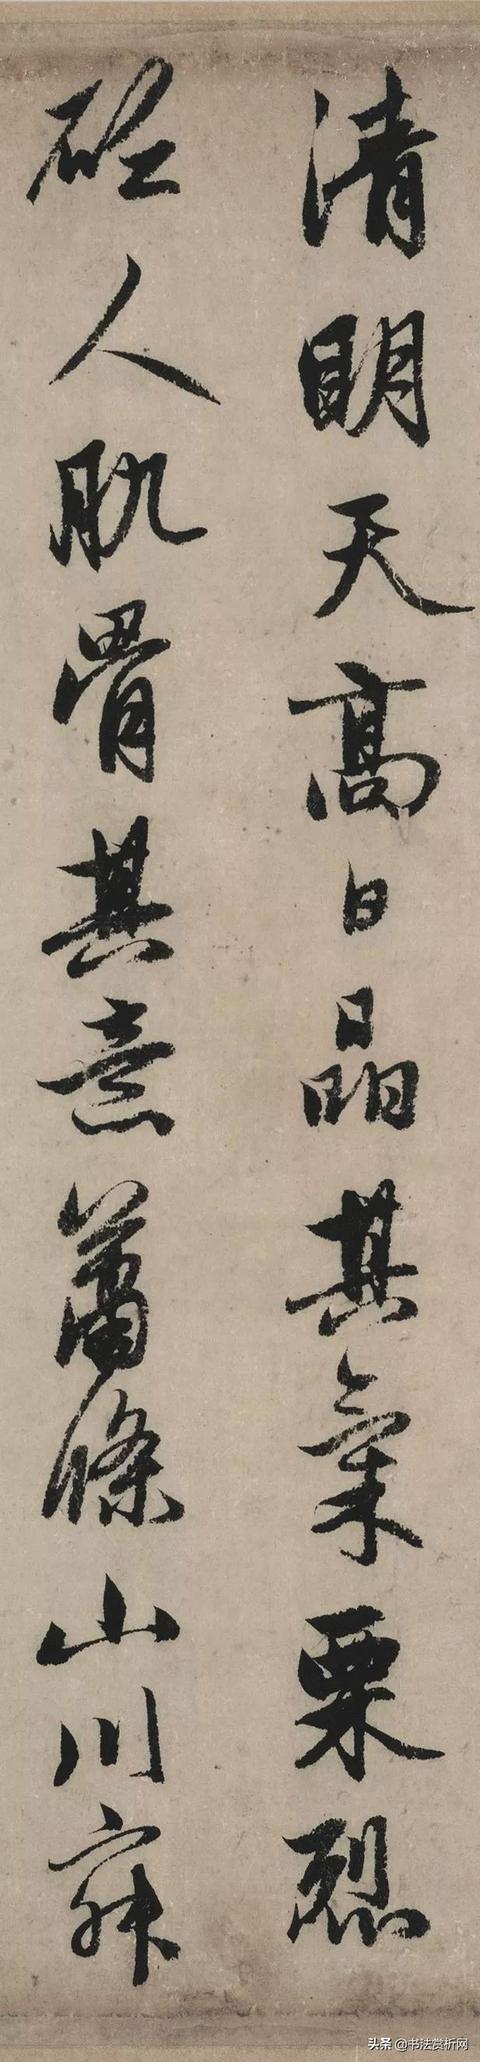 清明天高日晶其氣栗烈
砭人肌骨其意蕭條山川寂
头条 @书法赏析网